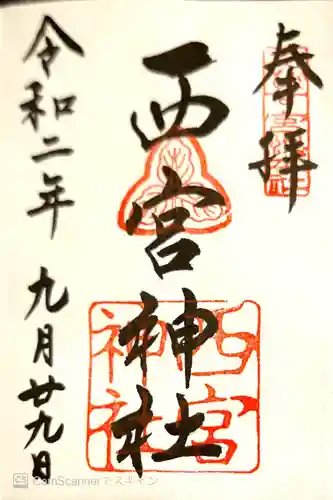 奉拝
西宮神社
令和二年 九月廿九日
西宮
神社
CamScannerでスキャン